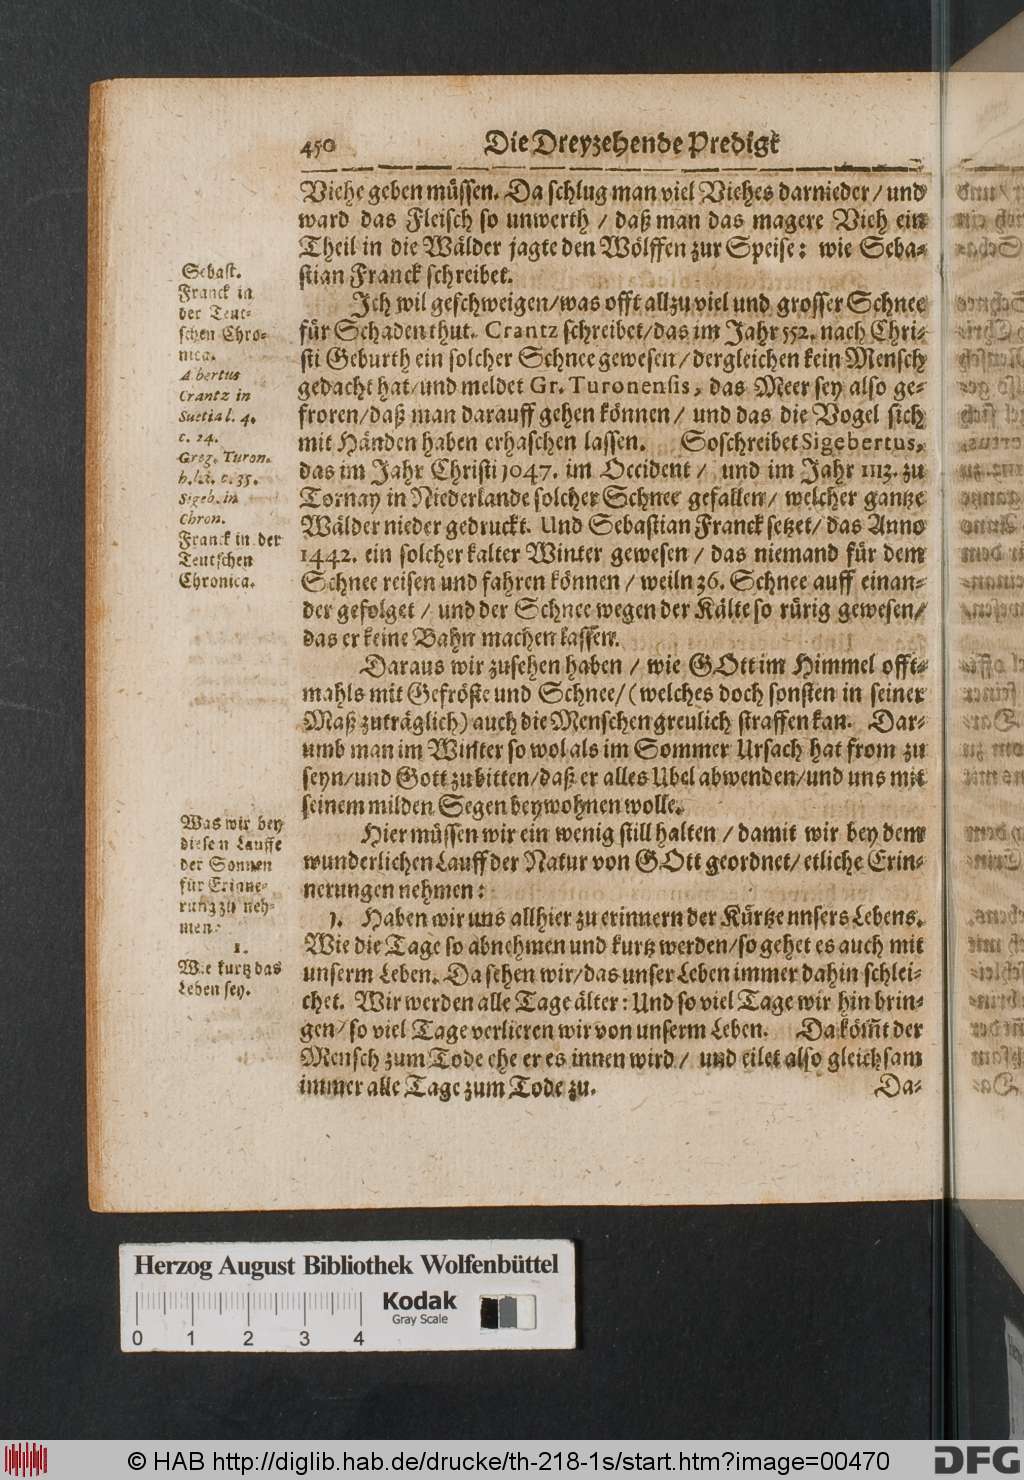 450 Die Dreyzehende Predigt
Viehe geben müssen. Da schlug man viel Viehes darnieder / und
ward das Fleisch so unwerth / daß man das magere Vieh ein
Theil in die Wälder jagte den Wölffen zur Speise: wie Seba-
stian Franck schreibet.
Sebast.
Franck in
der Teut-
schen Chro-
nica.
Albertus
Crantz in
Suetia l. 4.
c. 24.
Greg. Turon.
c. 35.
Sigeb. in
Chron.
Franck in der
Teutschen
Chronica.
Ich wil geschweigen/was offt allzu viel und grosser Schnee
für Schaden thut. Crantz schreibet/das im Jahr 552. nach Chri-
sti Geburth ein solcher Schnee gewesen / dergleichen kein Mensch
gedacht hat/und meldet Gr. Turonensis, das Meer sey also ge-
froren/daß man darauff gehen können / und das die Vogel sich
mit Händen haben erhaschen lassen. So schreibet Sigebertus,
das im Jahr Christi 1047. im Occident / und im Jahr 1113. zu
Tornay in Niederlande solcher Schnee gefallen / welcher gantze
Wälder nieder gedruckt. Und Sebastian Franck setzet/das Anno
1442. ein solcher kalter Winter gewesen / das niemand für dem
Schnee reisen und fahren können / weiln 36. Schnee auff einan-
der gefolget / und der Schnee wegen der Kälte so rürig gewesen/
das er keine Bahn machen lassen.
Daraus wir zusehen haben / wie GOtt im Himmel offt-
mahls mit Gefröste und Schnee/ (welches doch sonsten in seiner
Maß zuträglich) auch die Menschen greulich straffen kan. Dar-
umb man im Winter so wol als im Sommer Ursach hat from zu
seyn/und Gott zubitten/daß er alles Ubel abwenden/und uns mit
seinem milden Segen beywohnen wolle.
Was wir bey
diesen Lauffe
der Sonnen
für Erinne-
rung zu neh-
men.
1.
Wie kurtz das
Leben sey.
Hier müssen wir ein wenig still halten / damit wir bey dem
wunderlichen Lauff der Natur von GOtt geordnet/ etliche Erin-
nerungen nehmen:
1. Haben wir uns allhier zu erinnern der Kürtze nnsers Lebens.
Wie die Tage so abnehmen und kurtz werden/so gehet es auch mit
unserm Leben. Da sehen wir/das unser Leben immer dahin schlei-
chet. Wir werden alle Tage älter: Und so viel Tage wir hin brin-
gen/ so viel Tage verlieren wir von unserm Leben. Da köm̃t der
Mensch zum Tode ehe er es innen wird / und eilet also gleichsam
immer alle Tage zum Tode zu.
Da-
Herzog August Bibliothek Wolfenbüttel
0 1 2 3 4
Kodak
Gray Scale
© HAB http://diglib.hab.de/drucke/th-218-1s/start.htm?image=00470
DFG